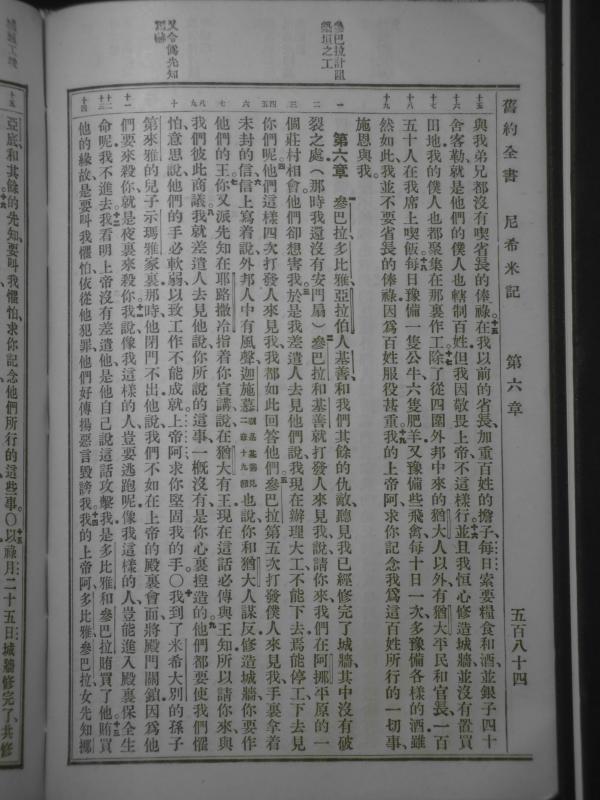 舊約全書 尼希米記 第六章 五百八十四
與我弟兄都沒有喫省長的俸祿在我以前的省長加重百姓的擔子每日索要糧食和酒並銀子四十
舍客勒就是他們的僕人也轄制百姓但我因敬畏上帝不這樣行並且我恆心修造城牆並沒有置買
田地我的僕人也都聚集在那裏作工除了從四圍外邦中來的猶大人以外有猶大平民和官長一百
五十人在我席上喫飯每日豫備一隻公牛六隻肥羊又豫備些飛禽每十日一次多豫備各樣的酒雖
然如此我並不要省長的俸祿因爲百姓服役甚重我的上帝阿求你記念我爲這百姓所行的一切事
施恩與我
第六章 參巴拉多比雅亞拉伯人基善和我們其餘的仇敵聽見我已經修完了城牆其中沒有破
裂之處（那時我還沒有安門扇）參巴拉和基善就打發人來見我說請你來我們在阿挪平原的一
個莊村相會他們卻想害我於是我差遣人去見他們說我現在辦理大工不能下去焉能停工下去見
你們呢他們這樣四次打發人來見我我都如此回答他們參巴拉第五次打發僕人來見我手裏拿着
未封的信信上寫着說外邦人中有風聲迦施慕也說你和猶大人謀反修造城牆你要作
他們的王你又派先知在耶路撒冷指着你宣講說在猶大有王現在這話必傳與王知所以請你來與
我們彼此商議我就差遣人去見他說你所說的這事一槪沒有是你心裏揑造的他們都要使我們懼
怕意思說他們的手必軟弱以致工作不能成就上帝阿求你堅固我的手〇我到了米希大別的孫子
第來雅的兒子示瑪雅家裏那時他閉門不出他說我們不如在上帝的殿裏會面將殿門關鎖因爲他
們要來殺你就是夜裏來殺你我說像我這樣的人豈要逃跑呢像我這樣的人豈能進入殿裏保全生
命呢我不進去我看明上帝沒有差遣他是他自己說這話攻擊我是多比雅和參巴拉賄買了他賄買
他的緣故是要叫我懼怕依從他犯罪他們好傳揚惡言毀謗我我的上帝阿多比雅參巴拉女先知挪
亞底和其餘的先知要叫我懼怕求你記念他們所行的這些事〇以祿月二十五日城牆修完了共修